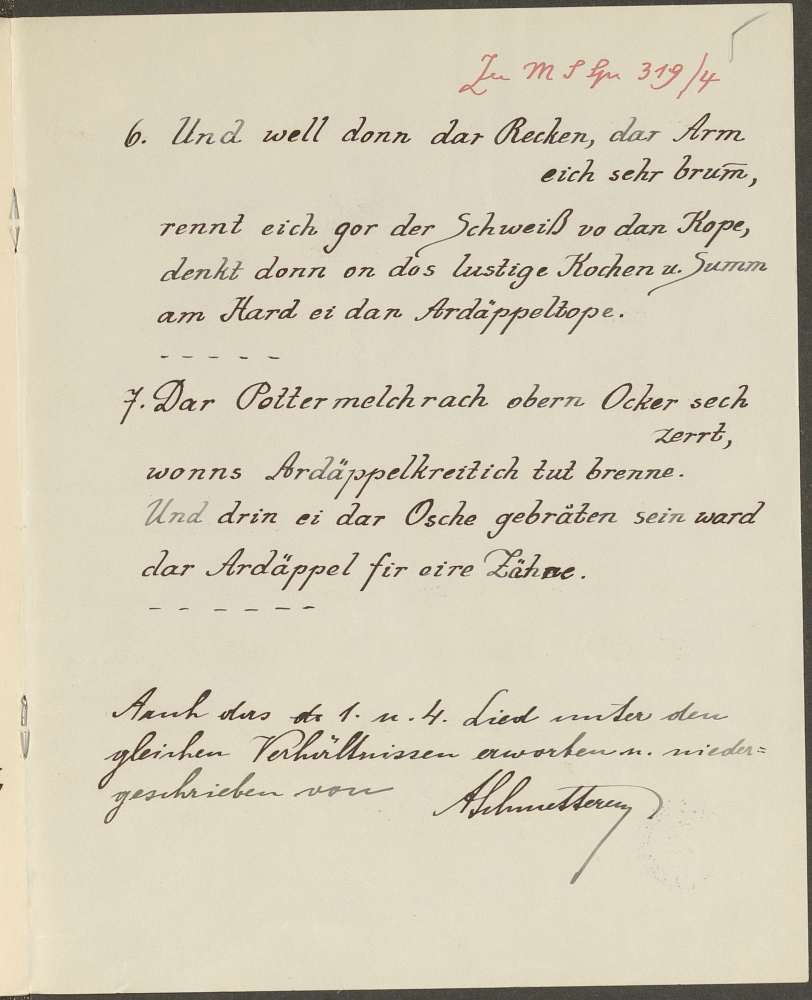 Zu M S Spr 319/4
6. Und well donn dar Recken, dar Arm
eich sehr brum̅,
rennt eich gor der Schweiß vo dan Kope,
denkt donn on dos lustige Kochen u. Summ
am Hard ei dan Ardäppeltope.
- - - - -
7. Dar Pottermelchrach obern Ocker sech
zerrt,
wonns Ardäppelkreitich tut brenne.
Und drin ei dar Osche gebräten sein ward
dar Ardäppel fir eire Zähne.
- - - - - -
Auch das 1. u. 4. Lied unter den
gleichen Verhältnissen erworben u. nieder=
geschrieben von